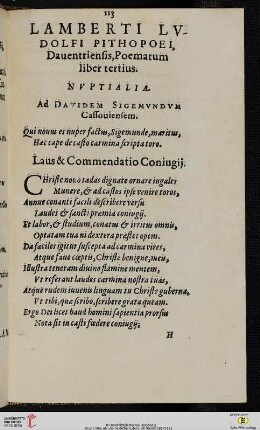 113
LAMBERTI LV-
DOLFI PITHOPOEI,
Dauentriensis, Poematum
liber tertius.
NVPTIALIA.
Ad DAVIDEM SIGEMVNDVM
Cassouiensem.
Qui nouus es nuper factus, Sigemunde, maritus,
Hæc cape de casto carmina scripta toro.
Laus & Commendatio Coniugij.
CHriste nouo tædas dignate ornare iugales
Munere, & ad castos ipse venire toros,
Annue conanti facili describere versu
Laudes & sancti præmia coniugij.
Et labor, & studium, conatus & irritus omnis,
Optatam tua ni dextera præstet opem.
Da faciles igitur suscepta ad carmina vires,
Atque faue cœptis, Christe benigne, meis,
Illustra teneram diuino flamine mentem,
Vt referant laudes carmina nostra tuas,
Atque rudem iuuenis linguam tu Christe guberna,
Vt tibi, quæ scribo, scribere grata queam.
Ergo Dei licet haud homini sapientia prorsus
Nota sit in casti fœdere coniugij;
H